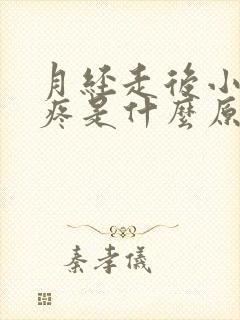 月经走后小
疼是什麼原
秦孝儀